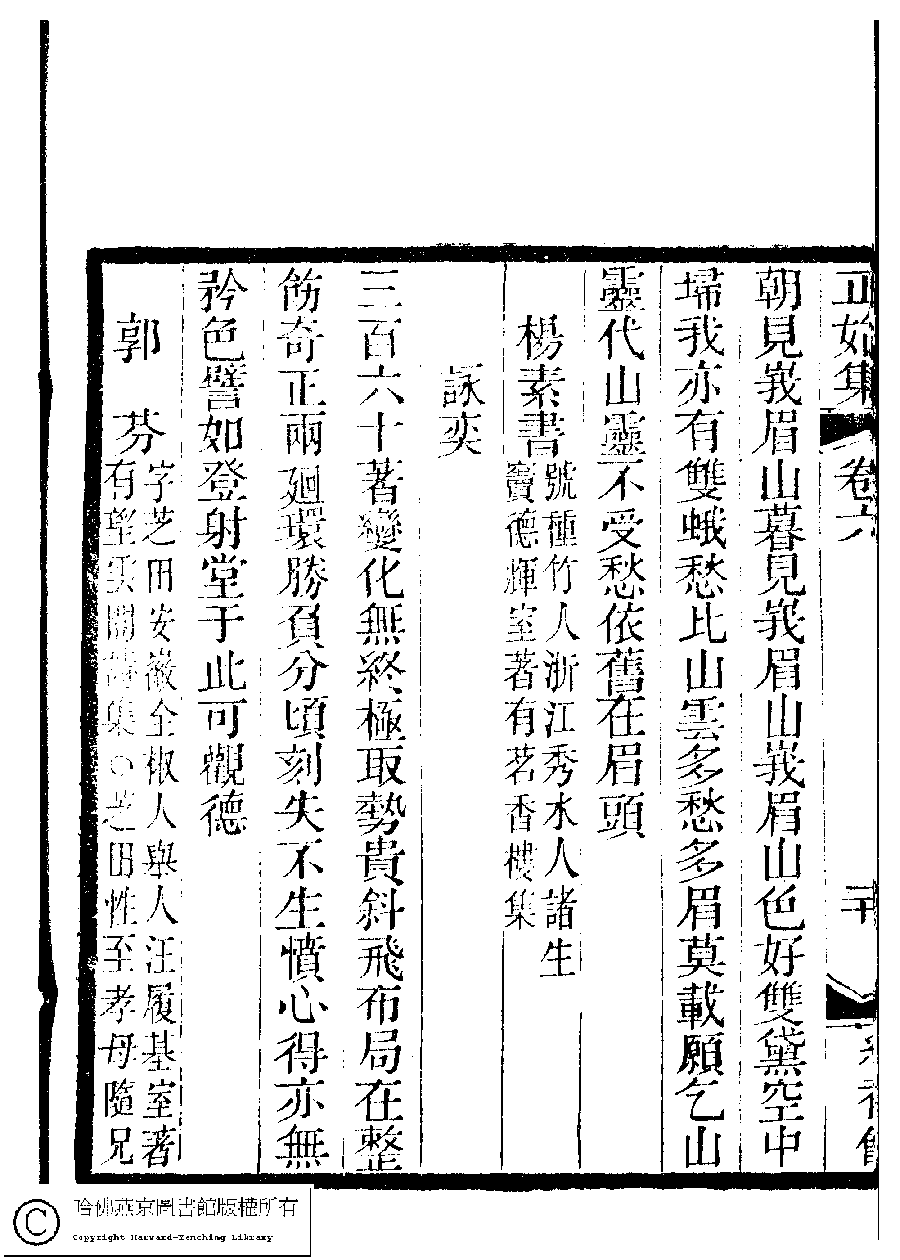 正始集 卷六 二十
朝見峩眉山暮見峩眉山峩眉山色好雙黛空中
埽我亦有雙蛾愁比山雲多愁多眉莫載願乞山
靈代山靈不受愁依舊在眉頭
楊素書 號種竹人浙江秀水人諸生
竇德輝室著有茗香樓集
詠奕
三百六十著變化無終極取勢貴斜飛布局在整
筋奇正兩廻環勝負分頃刻失不生憤心得亦無
矜色譬如登射堂于此可觀德
郭芬 字芝田安徽全椒人舉人汪履基室著
有望雲閣詩集○芝田性至孝母隨兄
哈佛燕京圖書館版權所有
Copyright Harvard-Yenching Library